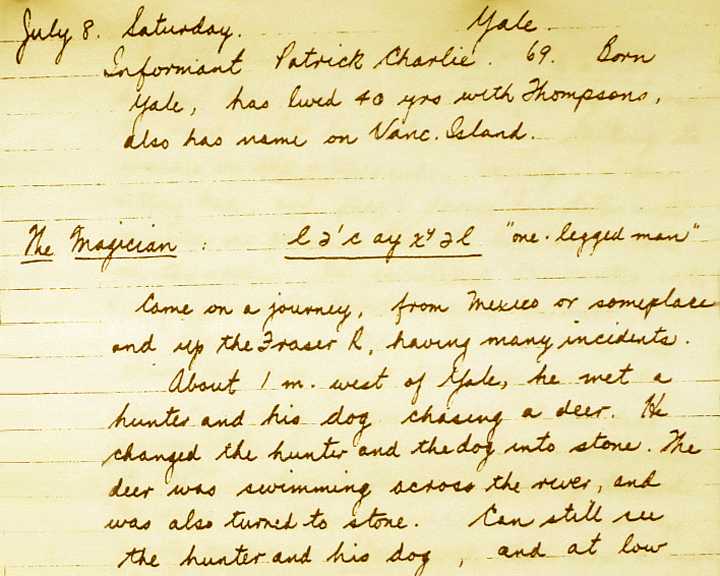 July 8. Saturday. Yale.
Informant Patrick Charlie. 69. Born
Yale, has lived 40 yrs with Thompsons,
also has name on Vanc. Island.
The Magician : lə'c ay xʸəl "one-legged man"
Came on a journey, from Mexico or someplace
and up the Fraser R, having many incidents.
About 1 m. west of Yale, he met a
hunter and his dog chasing a deer. He
changed the hunter and the dog into stone. The
deer was swimming across the river, and
was also turned to stone. Can still see
the hunter and his dog, and at low